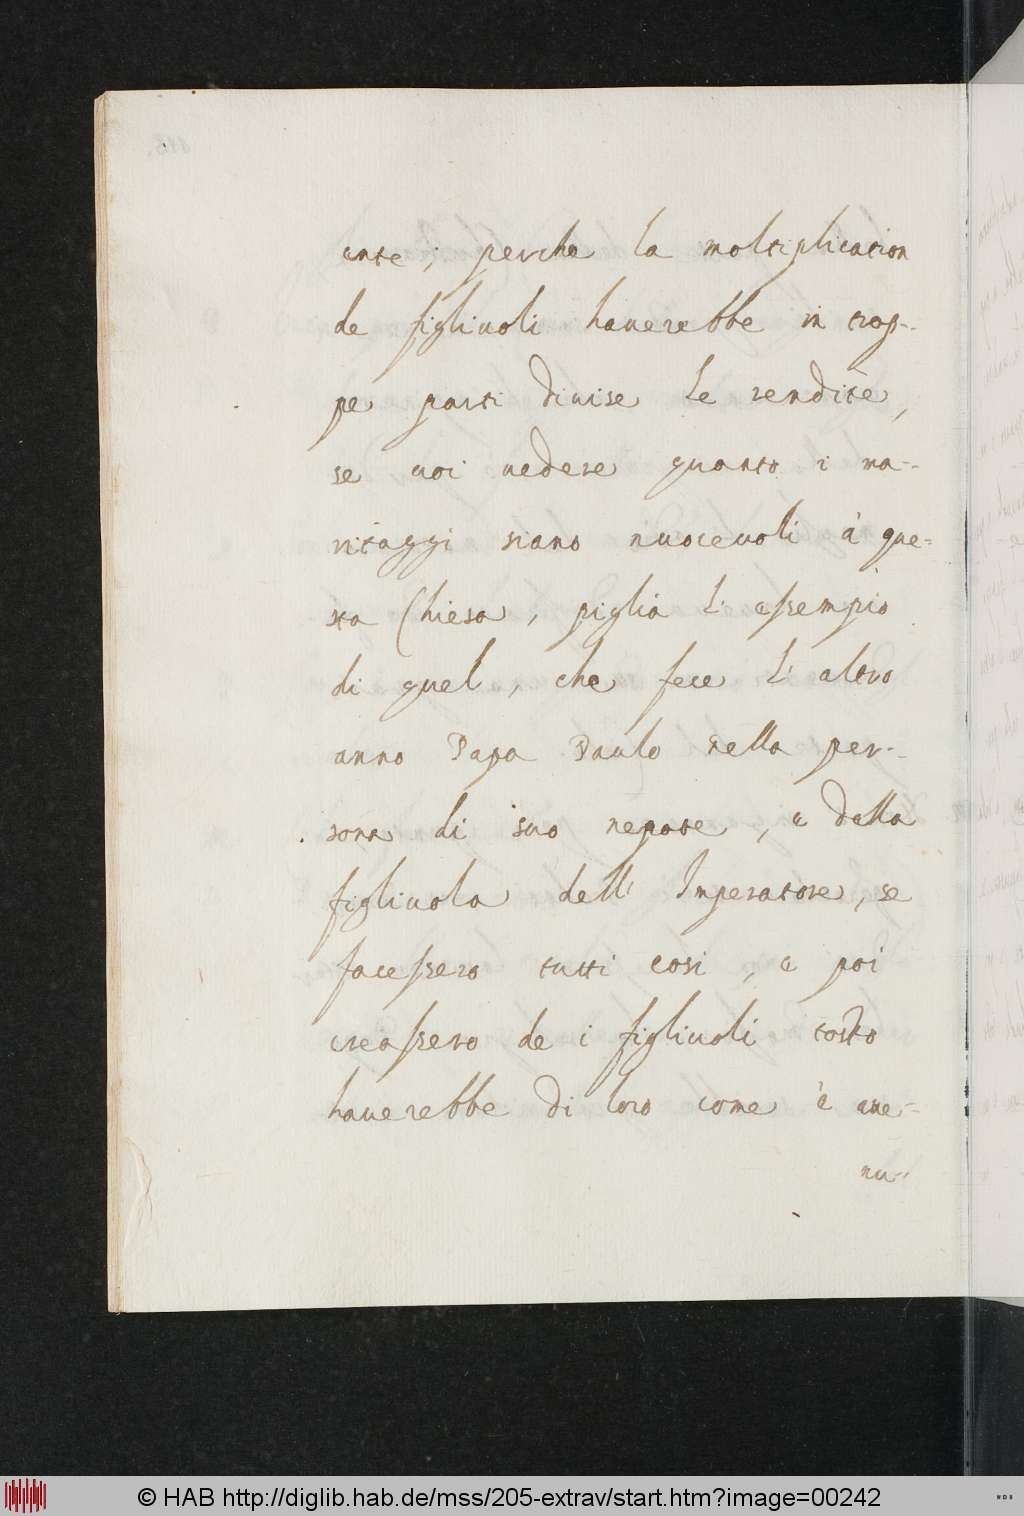 cate; perche la moltiplication
de figliuoli hauerebbe in trop-
pe parti diuise le rendite,
se uoi uedere quanto i ma-
ritaggi siano nuoceuoli à que-
sta Chiesa, piglia l' essempio
di quel, che fece l' altro
anno Papa Paulo nella per-
sona di suo nepote, e della
figliuola dell' Imperatore, se
facessero tutti cosi, e poi
creassero de i figliuoli tosto
hauerebbe di loro come è aue-
nu-
© HAB http://diglib.hab.de/mss/205-extrav/start.htm?image=00242